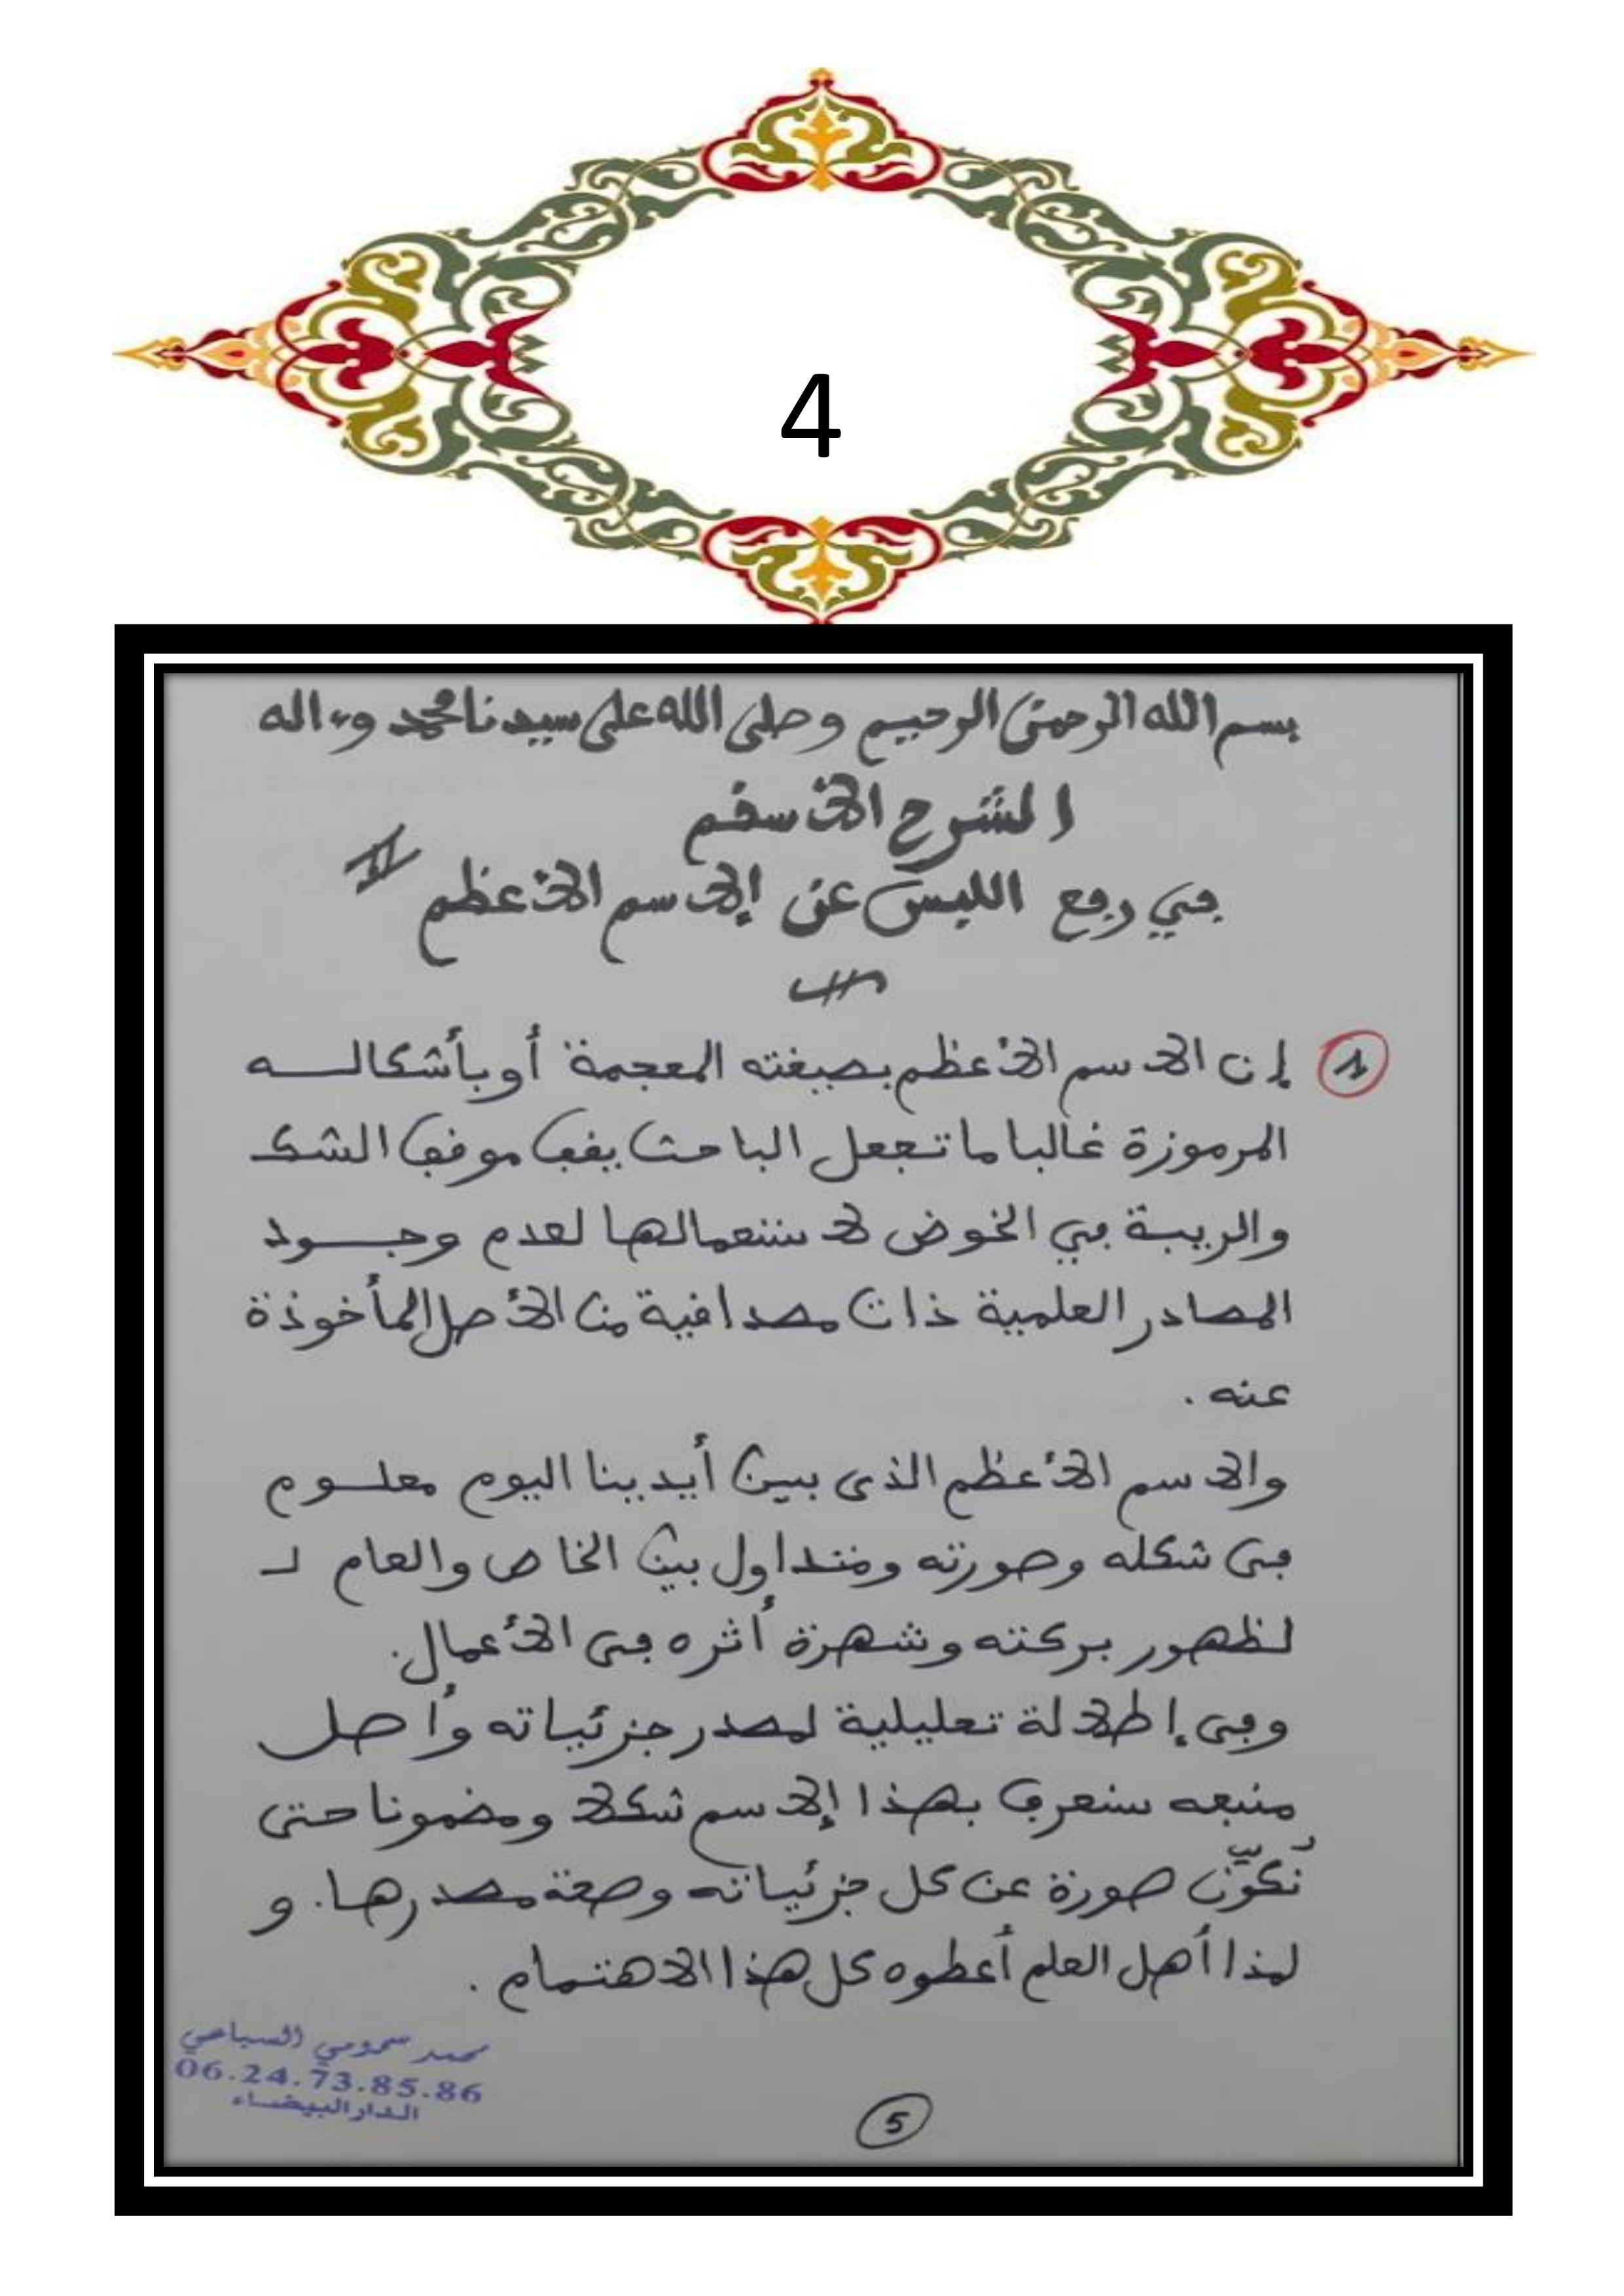 4
بسم الله الرحمن الرحيم وصلى الله على سيدنا محمد وءاله
الشرح الأسقم
في رفع اللبس عن الإسم الأعظم
1 إن الاسم الأعظم بصيغته المعجمة أو بأشكالــه
المرموزة غالبا ما تجعل الباحث يقف موقف الشك
والريبة في الخوض لاستعمالها لعدم وجــود
المصادر العلمية ذات مصداقية من الأصل المأخوذة
عنه .
والاسم الأعظم الذى بين أيدينا اليوم معلــوم
فى شكله وصورته ومتداول بين الخاص والعام لـ
لظهور بركته وشهرة أثره فى الأعمال.
وفى إطلالة تعليلية لمصدر جزئياته وأصل
منبعه سنعرف بهذا الإسم شكلا ومضمونا حتى
نكوّن صورة عن كل جزئياته وصحة مصدرها. و
لهذا أهل العلم أعطوه كل هذا الاهتمام .
محمد سمومي السباعي
06.24.73.85.86
الدار البيضاء
5